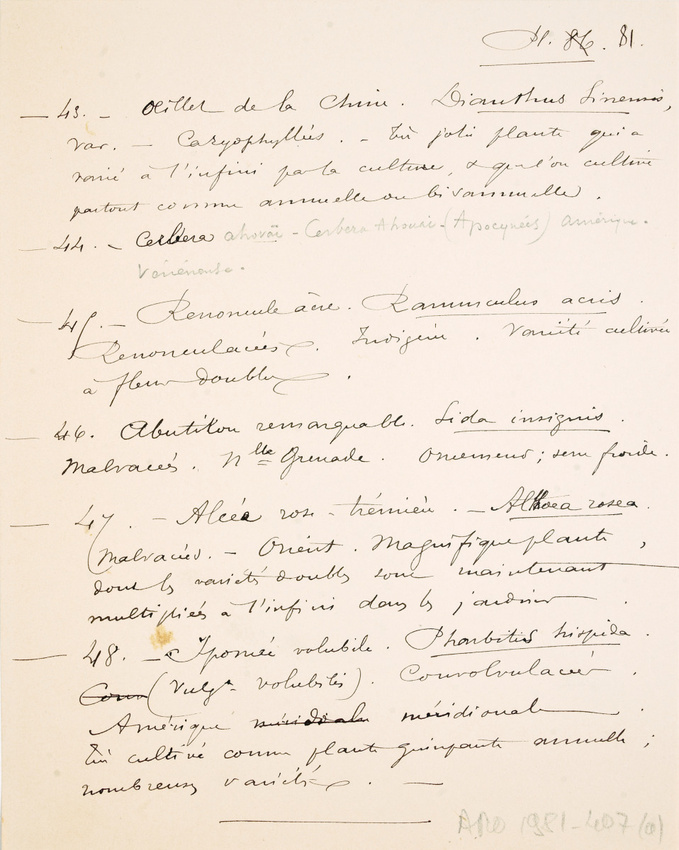 Pl. 86. 81.
— 43. — Œillet de la Chine. Dianthus Sinensis,
var. — Caryophyllées. — Très jolie plante qui a
varié à l'infini par la culture, & que l'on cultive
partout comme annuelle ou bisannuelle.
— 44. — Cerbera ahovaï - Cerbera Ahouai - (Apocynées) amérique.
Vénéneuse.
— 45. — Renoncule âcre. Ranunculus acris.
Renonculacées. Indigène. Variété cultivée
à fleur double.
— 46. Abutilon remarquable. Sida insignis.
Malvacées. Nlle Grenade. Ornement; serre froide.
— 47. — Alcée rose-trémière. — Althæa rosea.
(Malvacées. — Orient. Magnifique plante,
dont les variétés doubles sont maintenant
multipliées à l'infini dans les jardins.
— 48. — Ipomée volubile. Pharbitis hispida.
Conv (Vulgt volubilis). Convolvulacées.
Amérique méridionale méridionale.
Très cultivé comme plante grimpante annuelle;
nombreuses variétés. —
ARO 1981-407 (a)